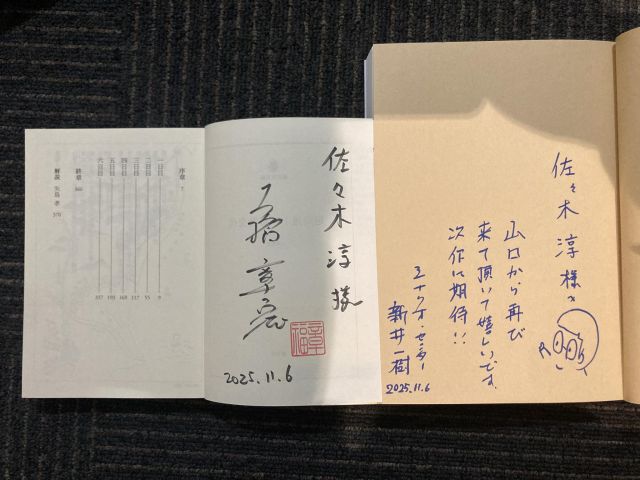 序章 7
一日目 9
二日目 55
三日目 117
四日目 168
五日目 193
六日目
終章
解説 370
佐々木 淳 様
土橋 章宏
2025.11.6
佐々木 淳 様へ
山口から再び
来て頂いて嬉しいです。
次作に期待!!
シナリオ・センター
新井一樹
2025.11.6